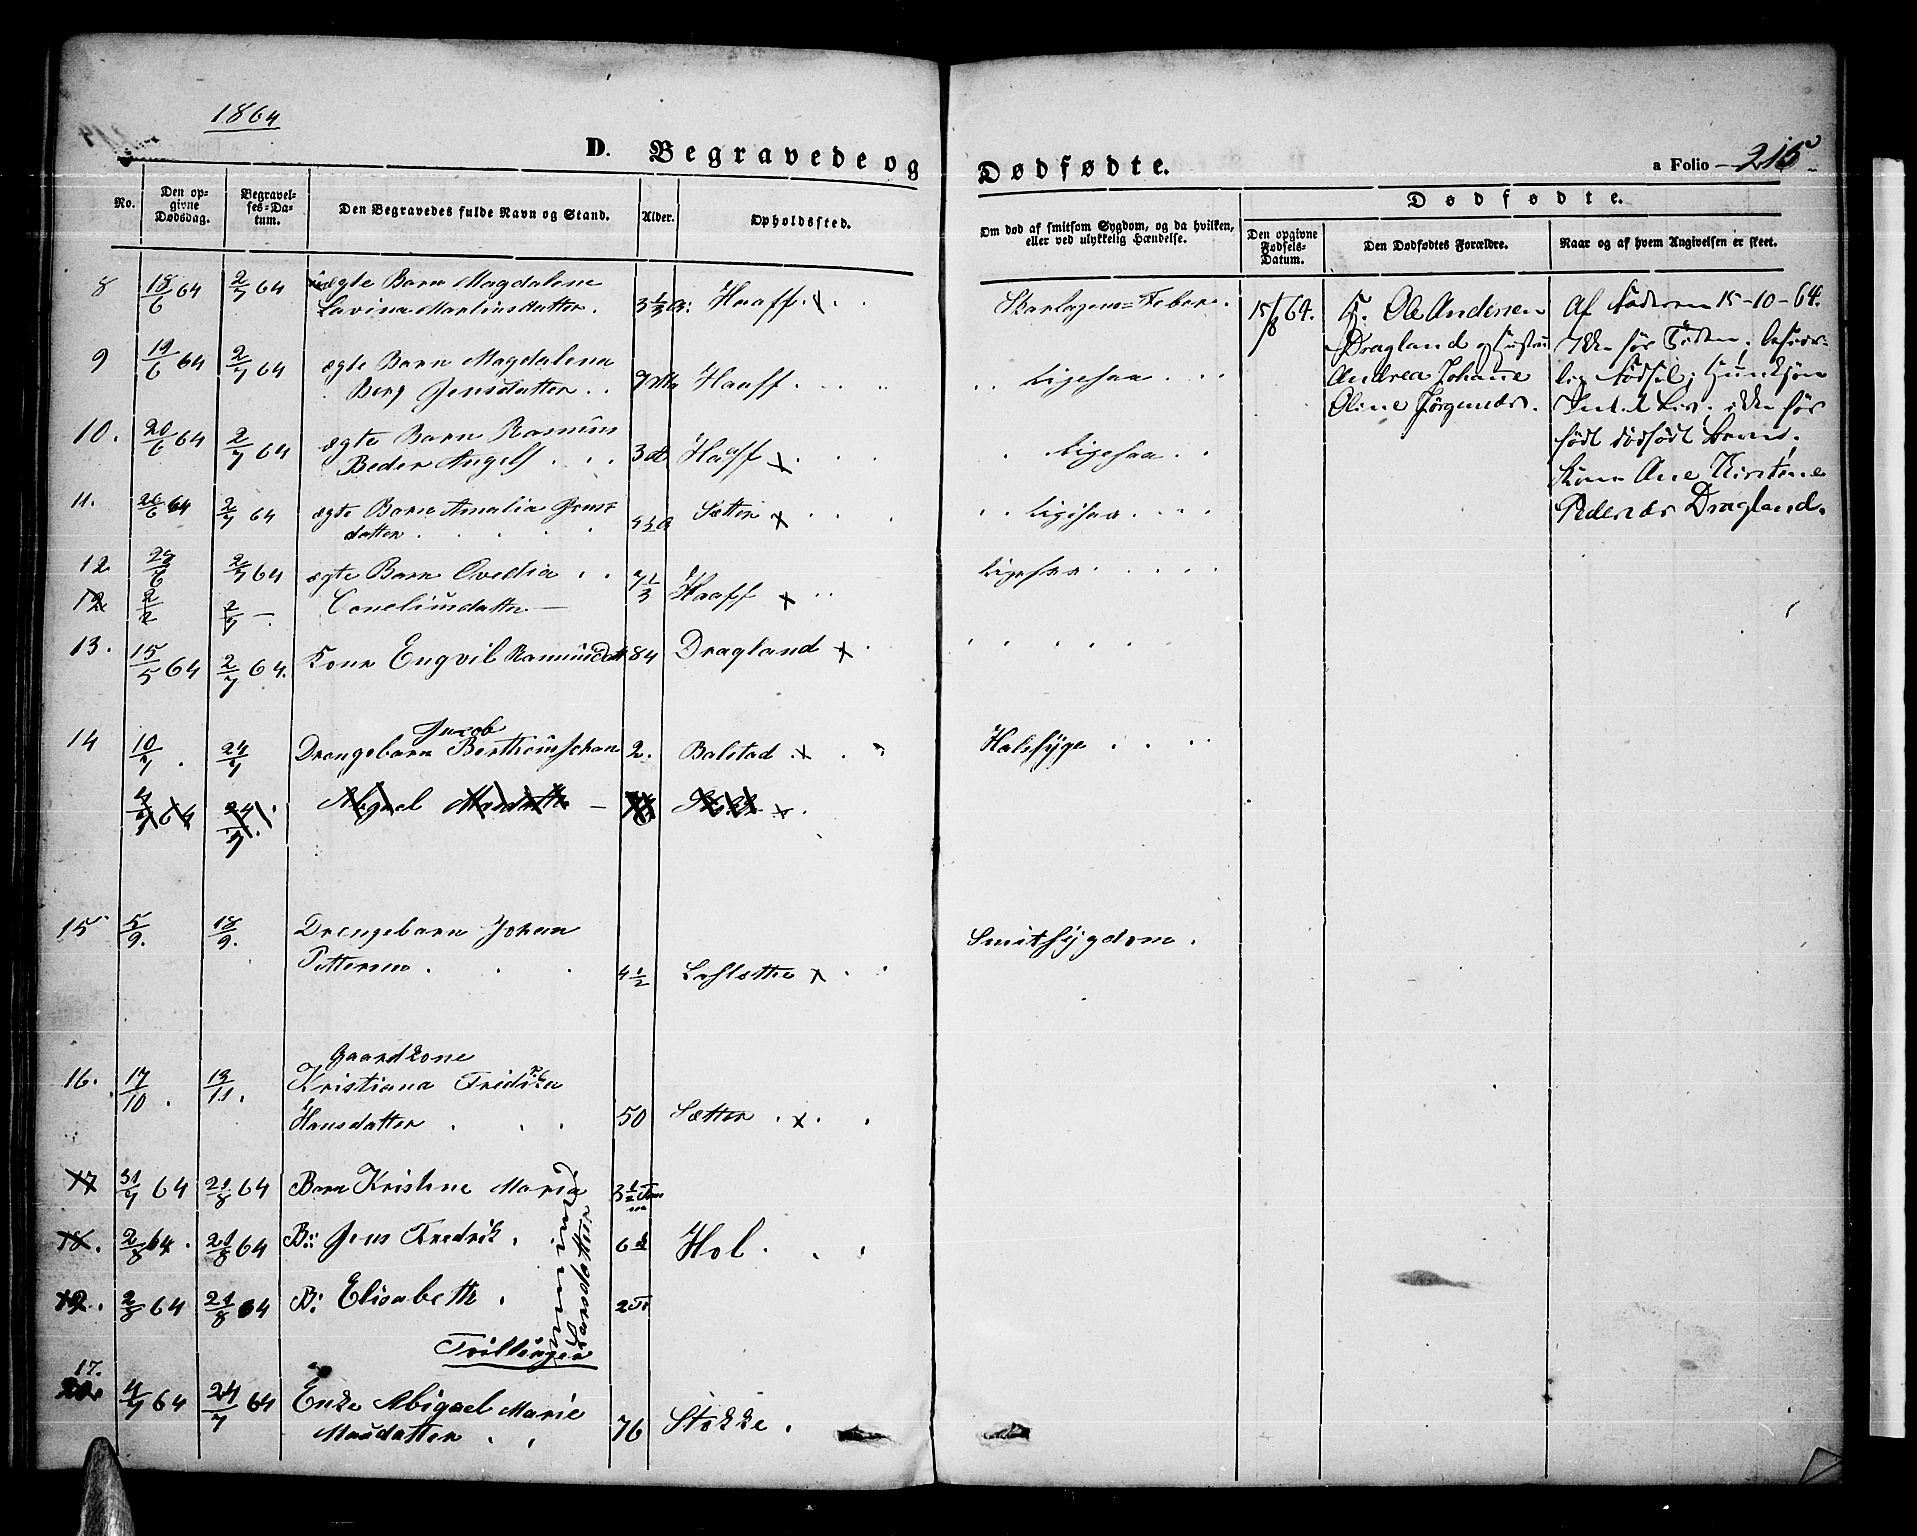 1864
D. Begravede og Dødfødte.
a Folio 215
Dødfødte.
No.
Den opgivne Dødsdag.
Begravelses-Datum.
Den Begravedes fulde Navn og Stand.
Alder.
Opholdssted.
Om død af smitsom Sygdom, og da hvilken, eller ved ulykkelig Hændelse.
Den opgivne Fødsels-Datum.
Den Dødfødtes Forældre.
Naar og af hvem Angivelsen er skeet.
8 18/6 64 2/7 64 ægte Barn Magdalene
Lavina Martinsdatter 3 1/3 a: Haaff x Skarlagens=Feber.
9 19/6 64 2/7 64 ægte Barn Magdalena
Berg Jensdatter Haaff. Ligesaa
10. 20/6 64 2/7 64 ægte Barn Rasmus
Beder Angell Haaff x Ligesaa
11. 26/6 64 2/7 64 ægte Barn Amalia Jens
datter Sætter x Ligesaa
12 29/6 2/7 64 ægte Barn Ovedia
Corneliusdatter 7 1/3 Haaff x Ligesaa
13. 15/5 64 2/7 64. Kone Engvil Rasmusdatt 84 Dragland x
14 10/7. 24/7 Jacob
Drengebarn Bertheus Johan 2. Balstad x Halssyge
Abigael Masdatter
15 5/9. 18/9. Drengebarn Johan
Pettersen 4 1/2 x Smitsygdom.
16. 17/10. 13/11. Gaardkone
Kristiana Fredrika
Hansdatter 50 Sætter x
17 31/7 64 21/8 64 Barn Kristine Maria 3 1/2
18. 2/8 64. 21/8 64 B: Jens Fredrik. 6 d Hol.
19. 2/8 64 21/8 64 B: Elisabeth. 2
Larsdatter
Trillinger
17.
20. 4/7 64 24/7 64 Enke Abigael Marie
Masdatter 76 Stokke.
15/8 64. Ole Andersen
Dragland og Hustru
Andrea Johanne
Oline Jørgensdr.
Af Faderen 15-10-64.
født dødfødt
Kone Ane Kirstine
Pedersdr Dragland.